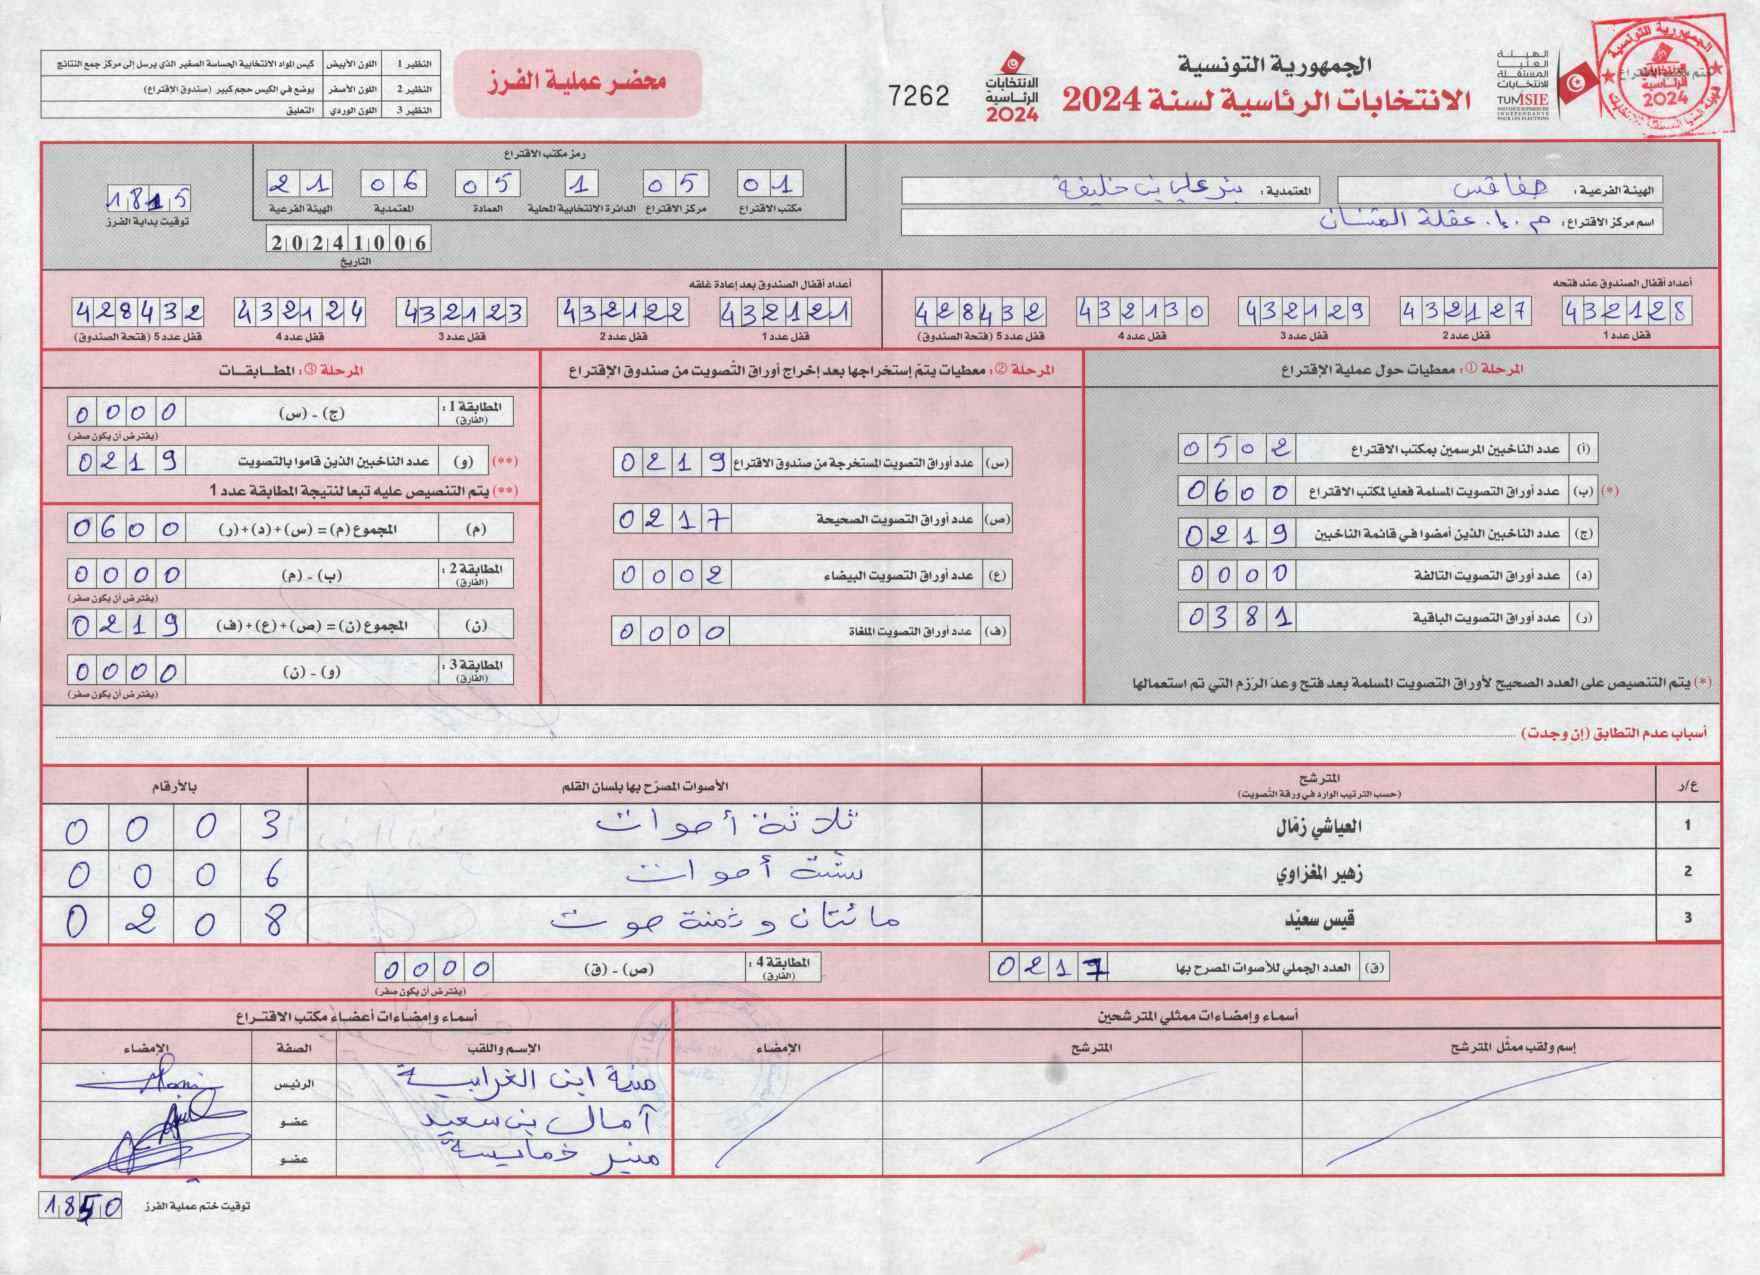 الجمهورية التونسية
الانتخابات الرئاسية لسنة 2024
الهيئة
العليا
المستقلة
للانتخابات
TUNISIE
INSTANCE SUPERIEURE
INDEPENDANTE
POUR LES ELECTIONS
الجمهورية التونسية
الانتخابات
الرئاسية
2024
7262
محضر عملية الفرز
النظير 1 اللون الأبيض كيس المواد الانتخابية الحساسة الصغير الذي يرسل إلى مركز جمع النتائج
النظير 2 اللون الأصفر يوضع في الكيس حجم كبير (صندوق الإقتراع)
النظير 3 اللون الوردي التعليق
الهيئة الفرعية : صفاقس
المعتمدية : بئر علي بن خليفة
اسم مركز الاقتراع : م .إ. عقلة
رمز مكتب الاقتراع
01 05 1 05 06 21
مكتب الاقتراع مركز الاقتراع الدائرة الانتخابية المحلية العمادة المعتمدية الهيئة الفرعية
20241006
التاريخ
1815
توقيت بداية الفرز
أعداد أقفال الصندوق عند فتحه
432128 432127 432129 432130 428432
قفل عدد 1 قفل عدد 2 قفل عدد 3 قفل عدد 4 قفل عدد 5 (فتحة الصندوق)
أعداد أقفال الصندوق بعد إعادة غلقه
432121 432122 432123 432124 428432
قفل عدد 1 قفل عدد 2 قفل عدد 3 قفل عدد 4 قفل عدد 5 (فتحة الصندوق)
المرحلة ① : معطيات حول عملية الإقتراع
(أ) عدد الناخبين المرسمين بمكتب الاقتراع 0502
(*) (ب) عدد أوراق التصويت المسلمة فعليا لمكتب الاقتراع 0600
(ج) عدد الناخبين الذين أمضوا في قائمة الناخبين 0219
(د) عدد أوراق التصويت التالفة 0000
(ر) عدد أوراق التصويت الباقية 0381
(*) يتم التنصيص على العدد الصحيح لأوراق التصويت المسلمة بعد فتح وعدّ الرزم التي تم استعمالها
المرحلة ② : معطيات يتمّ إستخراجها بعد إخراج أوراق التّصويت من صندوق الإقتراع
(س) عدد أوراق التصويت المستخرجة من صندوق الاقتراع 0219
(ص) عدد أوراق التصويت الصحيحة 0217
(ع) عدد أوراق التصويت البيضاء 0002
(ف) عدد اوراق التصويت الملغاة 0000
المرحلة ③ : المطــابقــات
المطابقة 1 : (الفارق) (ج) - (س) 0000
(يفترض أن يكون صفر)
(**) (و) عدد الناخبين الذين قاموا بالتصويت 0219
(**) يتم التنصيص عليه تبعا لنتيجة المطابقة عدد 1
(م) المجموع (م) = (س)+(د)+(ر) 0600
المطابقة 2 : (الفارق) (ب) - (م) 0000
(يفترض أن يكون صفر)
(ن) المجموع (ن) = (ص)+(ع)+(ف) 0219
المطابقة 3 : (الفارق) (و) - (ن) 0000
(يفترض أن يكون صفر)
أسباب عدم التطابق (إن وجدت)
ع/ر المترشح الأصوات المصرّح بها بلسان القلم بالأرقام
(حسب الترتيب الوارد في ورقة التّصويت)
1 العياشي زمّال ثلاثة أصوات 0003
2 زهير المغزاوي ستّة أصوات 0006
3 قيس سعيّد مائتان وثمنة صوت 0208
(ق) العدد الجملي للأصوات المصرح بها 0217
المطابقة 4 : (الفارق) (ص) - (ق) 0000
(يفترض أن يكون صفر)
أسماء وإمضاءات ممثلي المترشحين
إسم ولقب ممثّل المترشح المترشح الإمضاء
أسماء وإمضاءات أعضاء مكتب الاقتـراع
الإسم واللقب الصفة الإمضاء
منة ابن الغرابية الرئيس
آمال بن سعيد عضو
منير خمايسة عضو
توقيت ختم عملية الفرز 1850